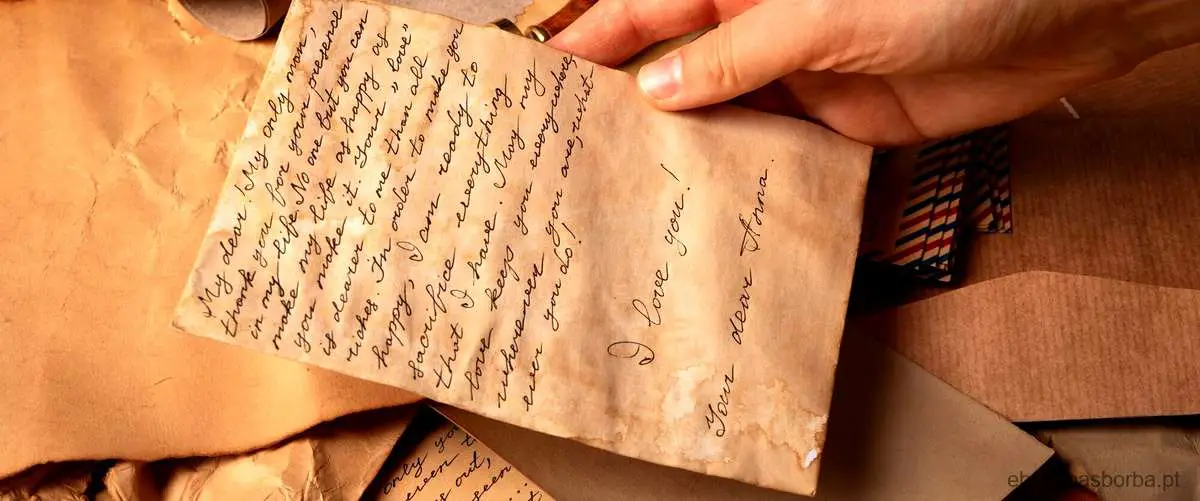 My dear! My only mom,
thank you for your presence
in my life. No one but you can
make my life as happy as
you make it. Your "love"
is dearer to me than all
riches. In order to make you
happy, I am ready to
sacrifice everything
that I have. May my
love keeps you everywhere,
wherever you are, what
ever you do!
I love you!
Your dear Anna.
only
out,
seen